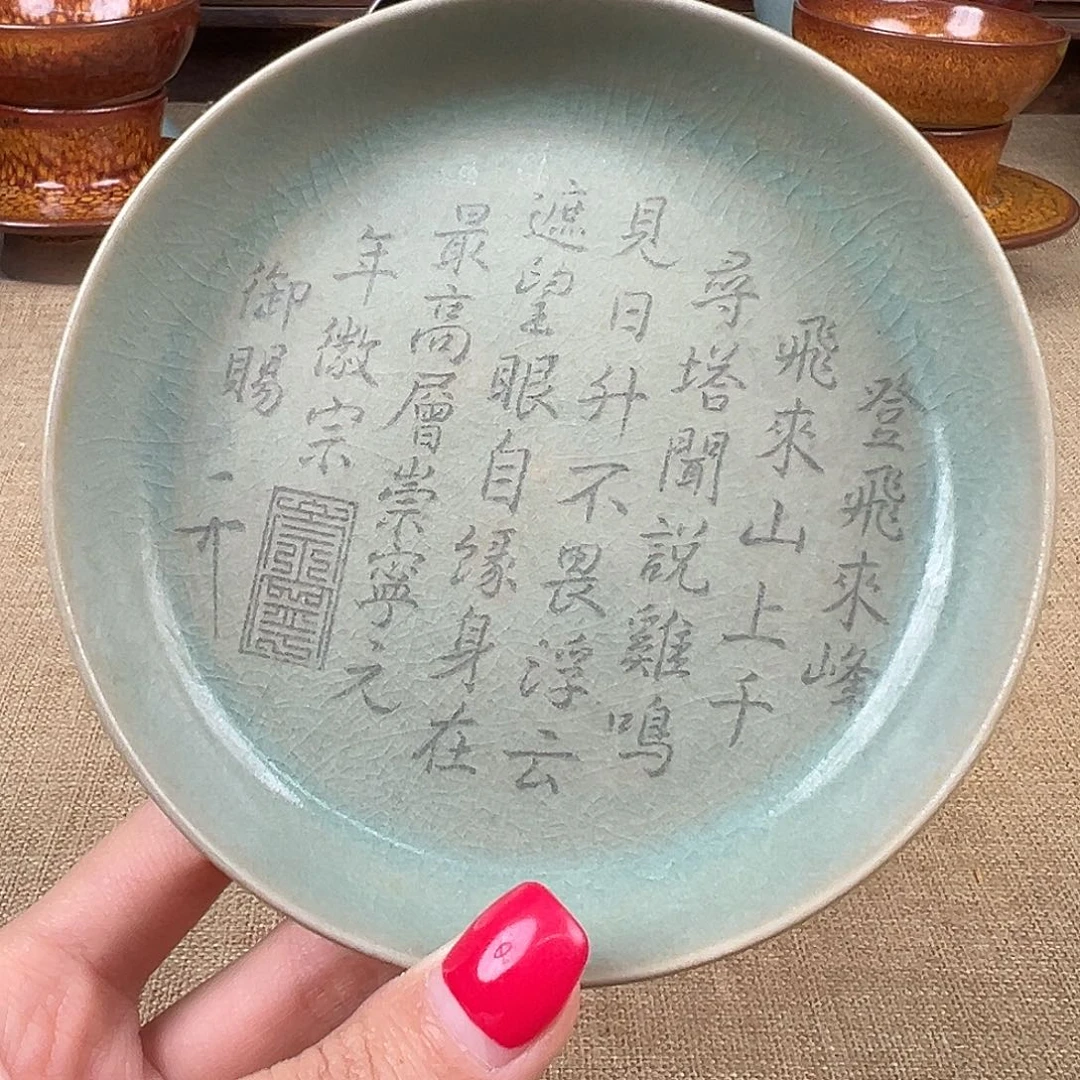 登飛來峰
飛來山上千
尋塔聞説雞鳴
見日升不畏浮云
遮望眼自緣身在
最高層崇寧元
年徽宗
御賜